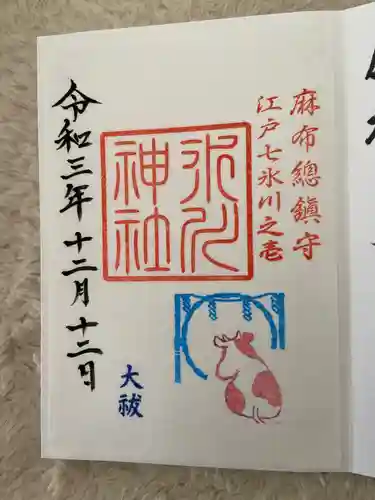 麻布總鎮守
江戸七氷川之壱
氷川
神社
令和三年十二月十三日
大祓